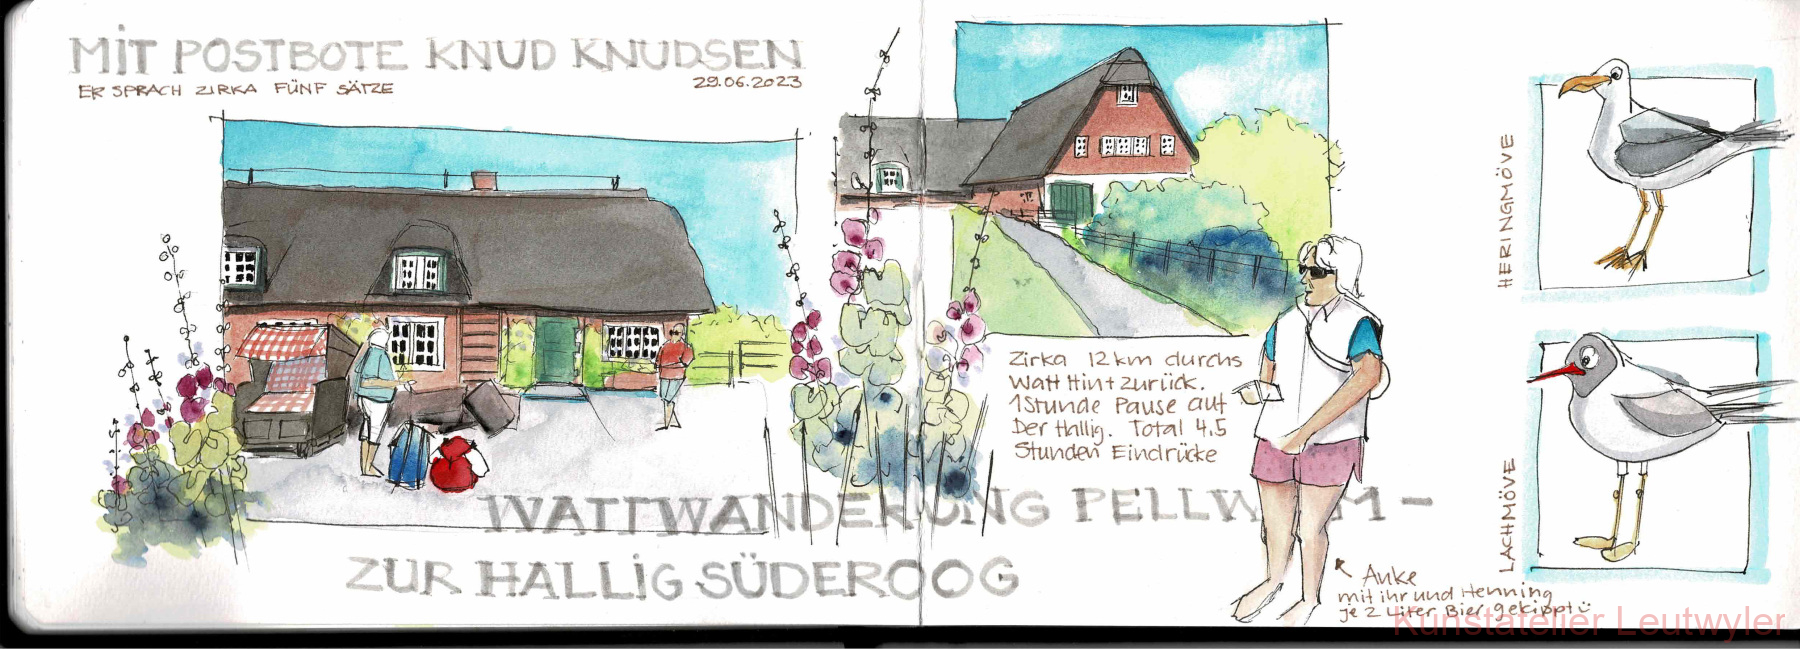 MIT POSTBOTE KNUD KNUDSEN
ER SPRACH ZIRKA FÜNF SÄTZE
29.06.2023
Zirka 12 km durchs
Watt Hin + zurück.
1 Stunde Pause auf
Der Hallig. Total 4,5
Stunden Eindrücke
WATTWANDERUNG PELLWORM -
ZUR HALLIG SÜDEROOG
HERINGMÖVE
LACHMÖVE
Anke
mit ihr und Henning
je 2 Liter Bier gekippt
Kunstatelier Leutwyler